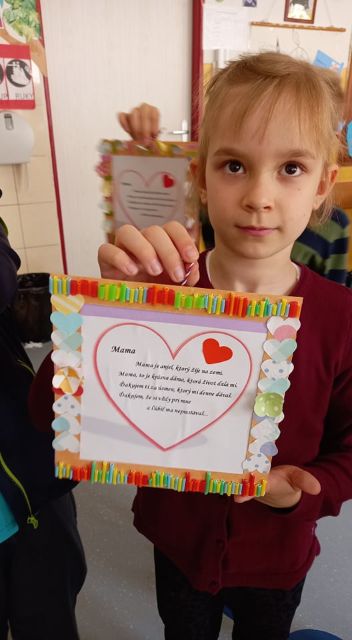 Mama
Mama je anjel, ktorý žije na zemi.
Mama, to je krásna dáma, ktorá život dala mi.
Ďakujem ti za úsmev, ktorý mi denne dávaš.
Ďakujem, že si vždy pri mne
a ľúbiť ma neprestávaš...
RUKY